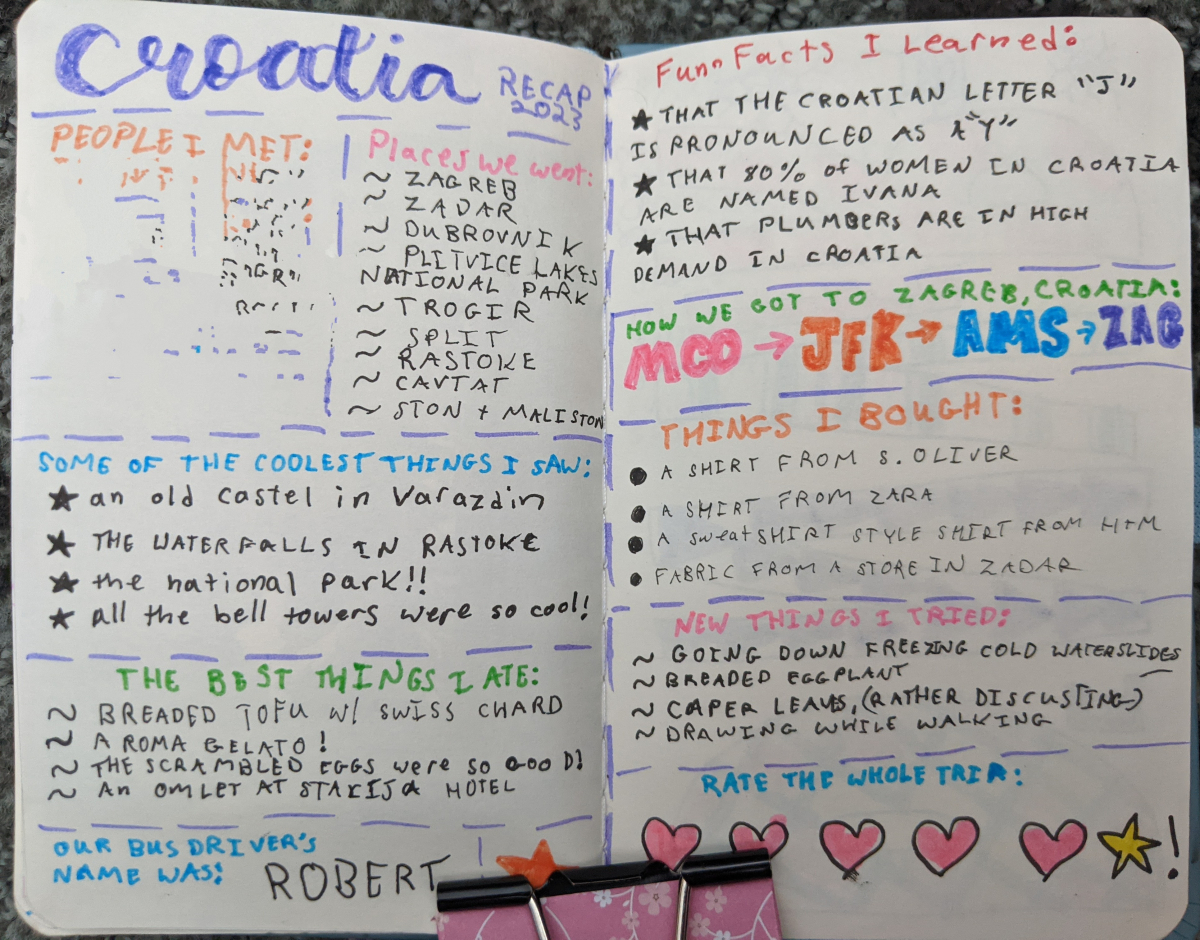 Croatia
RECAP
2023
PEOPLE I MET:
Places we went:
~ ZAGREB
~ ZADAR
~ DUBROVNIK
~ PLITVICE LAKES
NATIONAL PARK
~ TROGIR
~ SPLIT
~ RASTOKE
~ CAVTAT
~ STON + MALISTON
SOME OF THE COOLEST THINGS I SAW:
★ an old castel in Varazdin
★ THE WATERFALLS IN RASTOKE
★ the national park!!
★ all the bell towers were so cool!
THE BEST THINGS I ATE:
~ BREADED TOFU W/ SWISS CHARD
~ AROMA GELATO!
~ THE SCRAMBLED EGGS were so GOOD!
~ An OMLET AT HOTEL
OUR BUS DRIVER'S
NAME WAS:
ROBERT
Funn Facts I Learned:
★ THAT THE CROATIAN LETTER "J"
IS PRONOUNCED AS A "Y"
★ THAT 80% of WOMEN IN CROATIA
ARE NAMED IVANA
★ THAT PLUMBERS ARE IN HIGH
DEMAND IN CROATIA
HOW WE GOT TO ZAGREB, CROATIA:
MCO → JFK → AMS → ZAG
THINGS I BOUGHT:
● A SHIRT FROM S. OLIVER
● A SHIRT FROM ZARA
● A sweatSHIRT STYLE SHIRT FROM H+M
● FABRIC FROM A STORE IN ZADAR
NEW THINGS I TRIED:
~ GOING DOWN FREEZING COLD WATERSLIDES
~ BREADED EGGPLANT
~ CAPER LEAVES, (RATHER DISCUSTING)
~ DRAWING WHILE WALKING
RATE THE WHOLE TRIP:
!